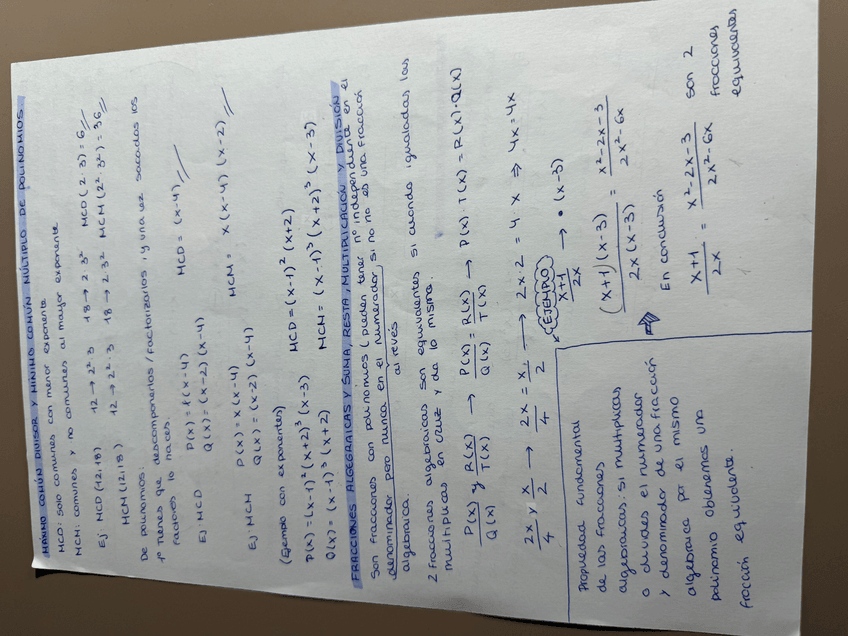 MÁXIMO COMÚN DIVISOR Y MÍNIMO COMÚN MÚLTIPLO DE POLINOMIOS.
MCD: solo comunes con menor exponente
MCM: comunes y no comunes al mayor exponente
Ej MCD (12,18) 12 → 2²·3 18 → 2·3² MCD (2·3) = 6
MCM (12,18) 12 → 2²·3 18 → 2·3² MCM (2²·3²) = 36
De polinomios:
1º tienes que descomponerlos / factorizarlos, y una vez sacados los
factores lo haces.
Ej MCD P(x) = x(x-4)
Q(x) = (x-2)(x-4) MCD = (x-4)
Ej MCM P(x) = x(x-4)
Q(x) = (x-2)(x-4) MCM = x(x-4)(x-2)
(Ejemplo con exponentes)
P(x) = (x-1)²(x+2)³(x-3) MCD = (x-1)²(x+2)
Q(x) = (x-1)³(x+2) MCM = (x-1)³(x+2)³(x-3)
FRACCIONES ALGEBRAICAS Y SUMA, RESTA, MULTIPLICACIÓN Y DIVISIÓN
Son fracciones con polinomios (pueden tener nº independiente en el
denominador pero nunca en el numerador, si no no es una fracción
algebraica. al revés
2 fracciones algebraicas son equivalentes si cuando igualadas las
multiplicas en cruz y da lo mismo.
P(x)/Q(x) y R(x)/T(x) → P(x)/Q(x) = R(x)/T(x) → P(x)·T(x) = R(x)·Q(x)
2x/4 y x/2 → 2x/4 = x/2 → 2x·2 = 4·x ⇒ 4x = 4x
Propiedad fundamental
de las fracciones
algebraicas: si multiplicas
o divides el numerador
y denominador de una fracción
algebraica por el mismo
polinomio obtenemos una
fracción equivalente.
(EJEMPLO)
x+1/2x → · (x-3)
(x+1)(x-3)/2x(x-3) = x²-2x-3/2x²-6x
⇒ En conclusión
x+1/2x = x²-2x-3/2x²-6x son 2
fracciones
equivalentes